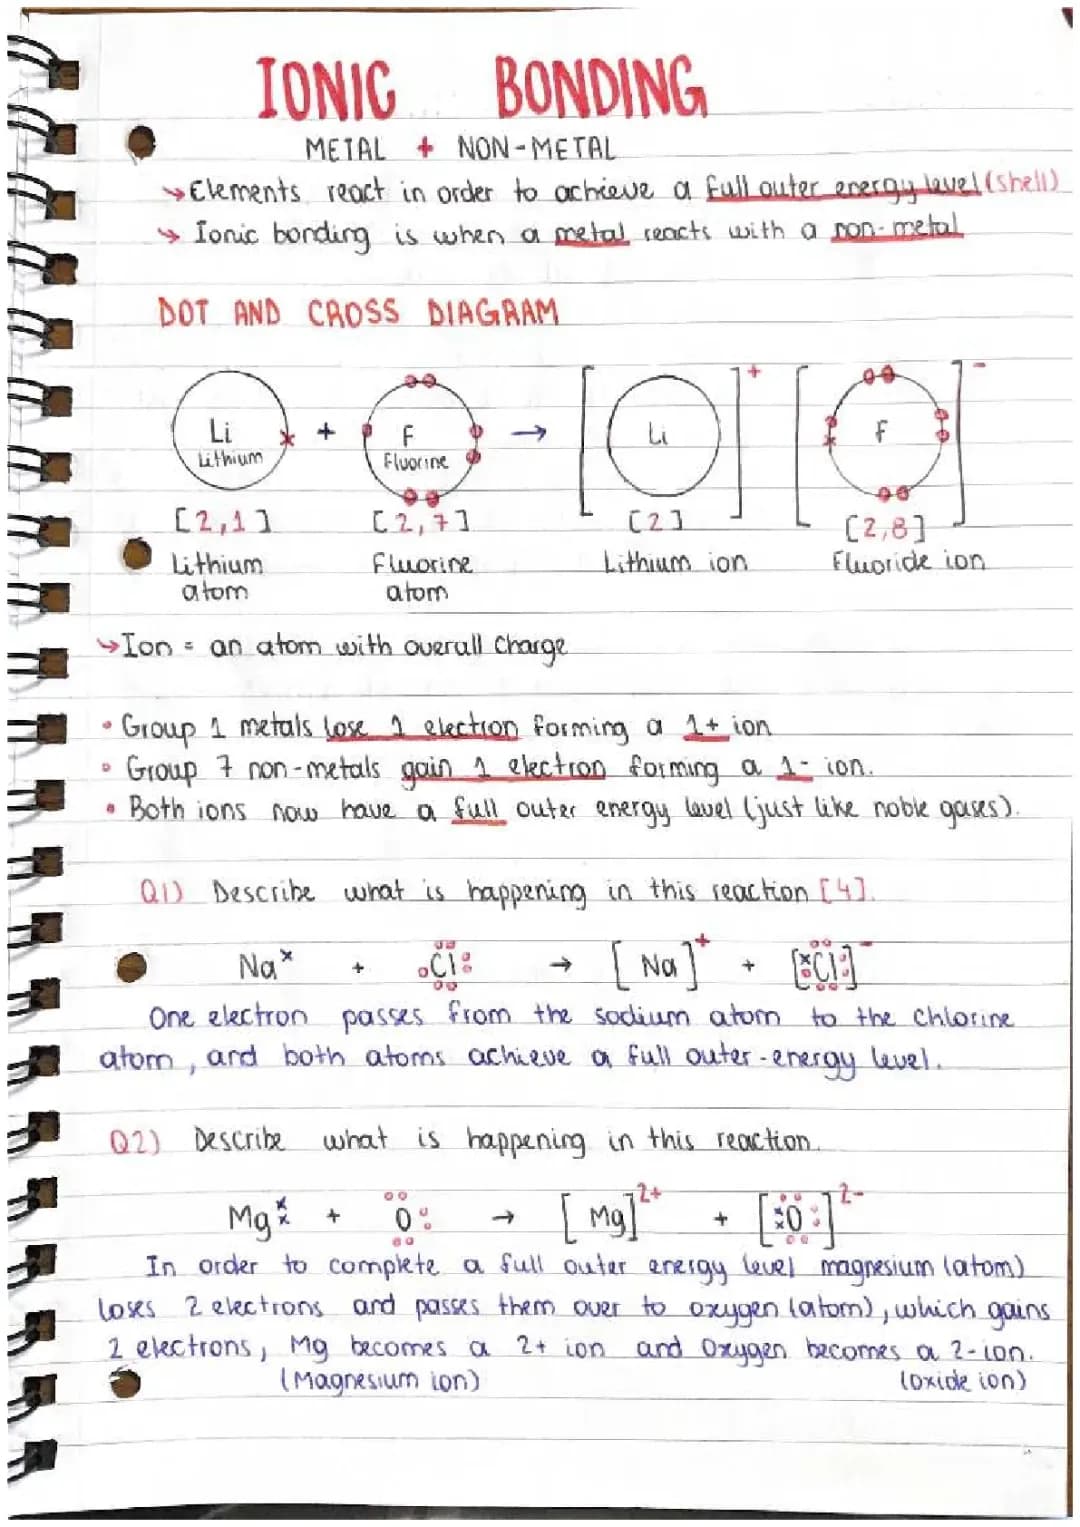 IONIC BONDING
METAL + NON-METAL
↳ Elements react in order to achieve a full outer energy level (shell)
↳ Ionic bonding is when a metal reacts with a non-metal
DOT AND CROSS DIAGRAM
Li + F → [Li]+ [F]-
Lithium Fluorine
[2,1] [2,7] [2] [2,8]
Lithium Fluorine Lithium ion Fluoride ion
atom atom
↳ Ion = an atom with overall charge
• Group 1 metals lose 1 electron forming a 1+ ion
• Group 7 non-metals gain 1 electron forming a 1- ion.
• Both ions now have a full outer energy level (just like noble gases).
Q1) Describe what is happening in this reaction [4].
Na + Cl → [Na]+ + [Cl]-
One electron passes from the sodium atom to the chlorine
atom, and both atoms achieve a full outer-energy level.
Q2) Describe what is happening in this reaction.
Mg + O → [Mg]2+ + [O]2-
In order to complete a full outer energy level magnesium (atom)
loses 2 electrons and passes them over to oxygen (atom), which gains
2 electrons, Mg becomes a 2+ ion and Oxygen becomes a 2-ion.
(Magnesium ion) (oxide ion)